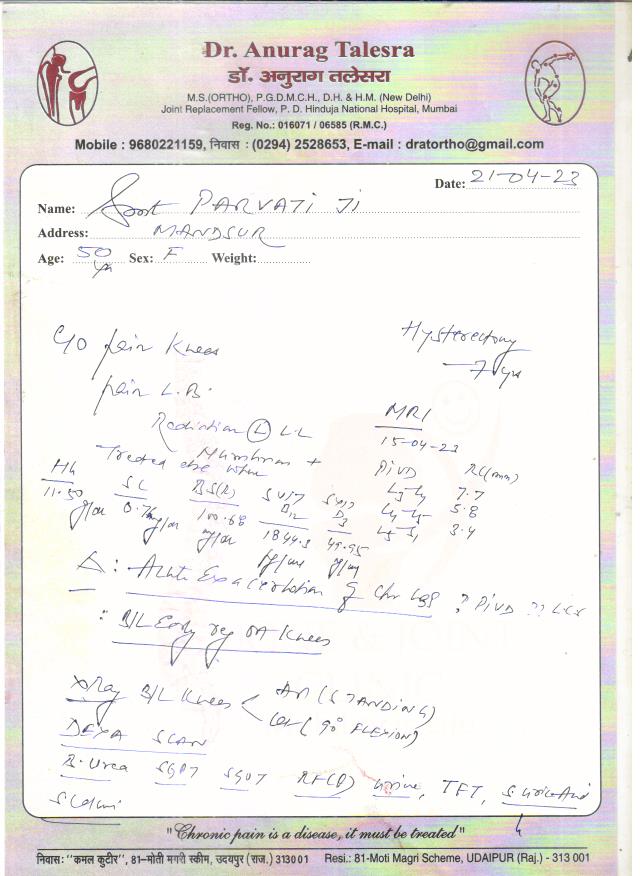 Dr. Anurag Talesra
डॉ. अनुराग तलेसरा
M.S.(ORTHO), P.G.D.M.C.H., D.H. & H.M. (New Delhi)
Joint Replacement Fellow, P. D. Hinduja National Hospital, Mumbai
Reg. No.: 016071 / 06585 (R.M.C.)
Mobile : 9680221159, निवास : (0294) 2528653, E-mail : dratortho@gmail.com
Date: 21-04-23
Name: PARVATI JI
Address: MANDSUR
Age: 50 yr Sex: F Weight:
C/O pain Knees
Hysterectomy
7 yrs
pain L.B.
Radiation (L) L.L
Numbness +
Treated else where
MRI
15-04-23
PIVD RC(mm)
L3-L4 7.7
L4-L5 5.8
L5-S1 3.4
Hb SC BS(R) SVIT B12 SVIT D3
11.50 0.76 100.68 1844.3 49.95
Δ: Acute Exacerbation of Chr LBS ? PIVD ?? LCS
: B/L Early deg OA Knees
XRay B/L Knees < AP (STANDING)
Lat (90° FLEXION)
DEXA SCAN
B. Urea SGPT SGOT RF(Q) Urine, TFT, S. Uric Acid
S. Calcium
"Chronic pain is a disease, it must be treated"
निवास: "कमल कुटीर", 81-मोती मगरी स्कीम, उदयपुर (राज.) 313001 Resi.: 81-Moti Magri Scheme, UDAIPUR (Raj.) - 313 001